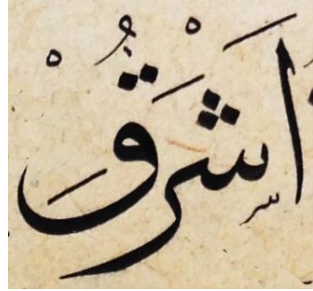 اَشْرَقَ